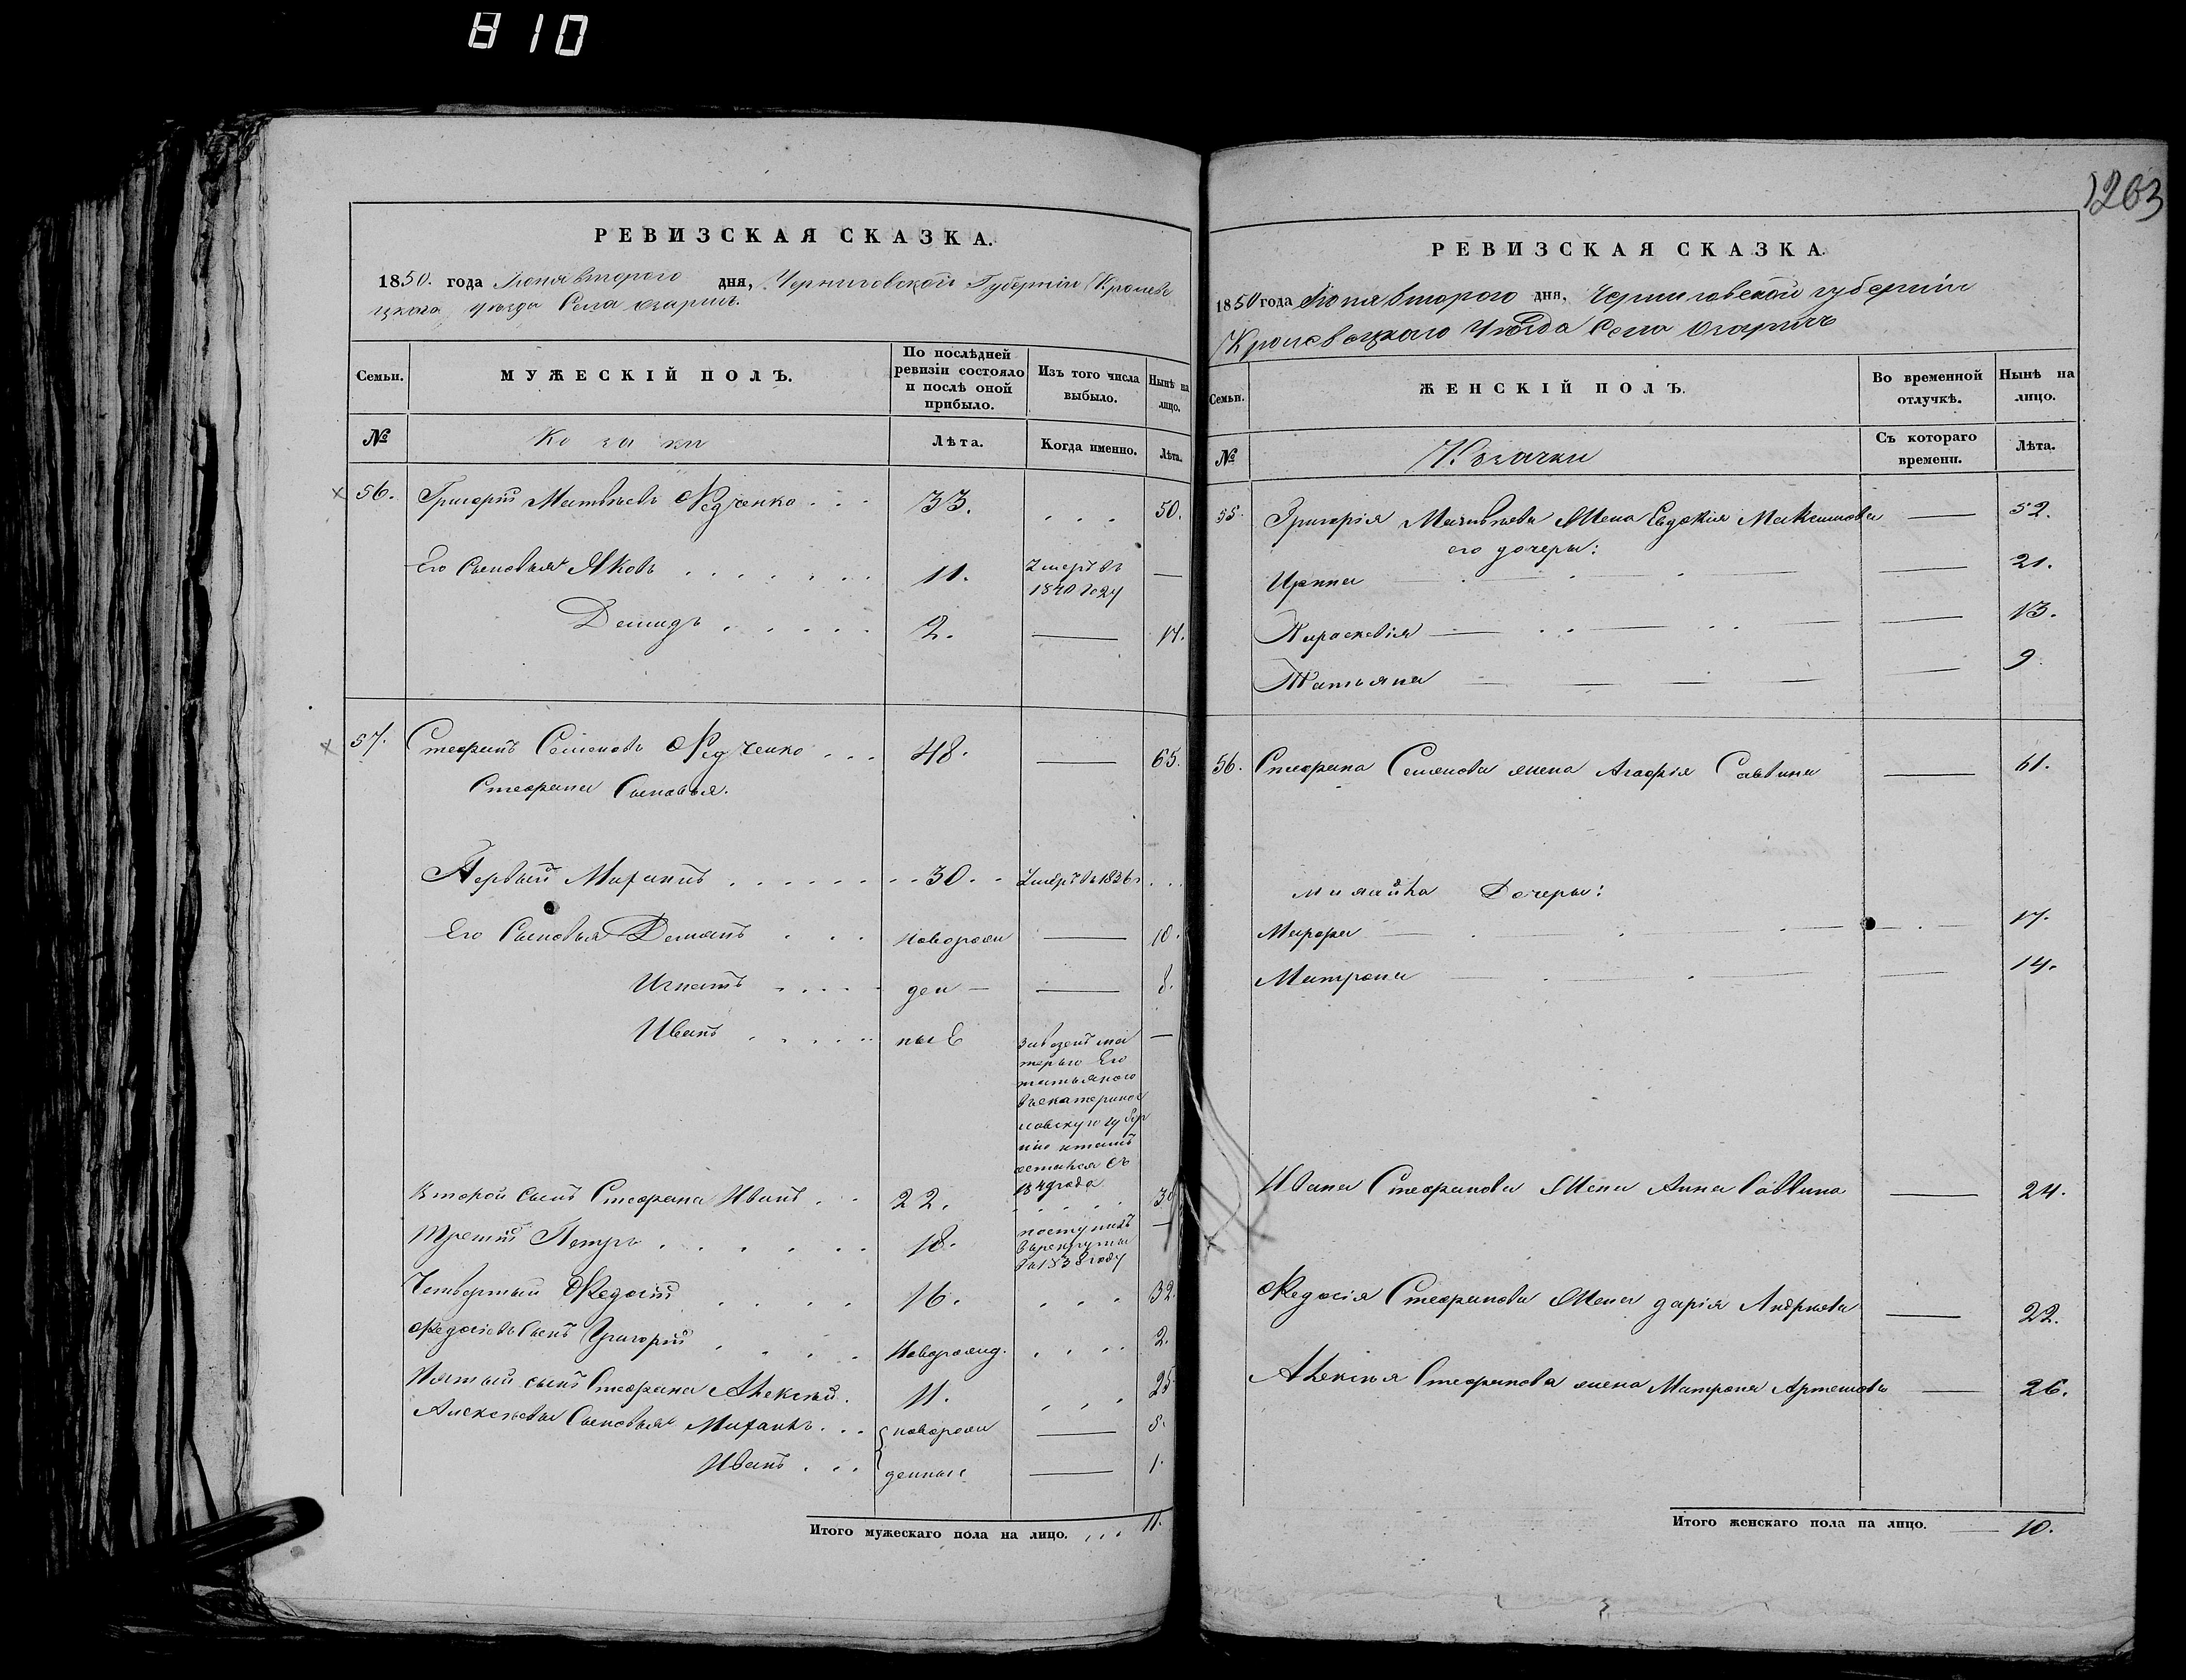 810
РЕВИЗСКАЯ СКАЗКА.
1850. года Июня второго дня, Черниговской Губернiи Кролеве
цкаго уѣзда Села Озаричъ
Семьи.
МУЖЕСКІЙ ПОЛЪ.
По послѣдней ревизіи состояло и послѣ оной прибыло.
Изъ того числа выбыло.
Нынѣ на лицо.
№
Козаки
Лѣта.
Когда именно.
Лѣта.
56. Григорій Матвѣевъ Федченко 33. 50.
Его Сыновья Яковъ 11. Умеръ въ 1840 году —
Демидъ 2. — 17.
57. Стефанъ Семеновъ Федченко 48. — 65.
Стефана Сыновья.
Первый Михаилъ 30. Умеръ въ 1836
Его Сыновья Демянъ новорож — 10.
Игнатъ ден — — 8.
Иванъ ные завезенъ ма —
терью Его
татьяною
въ екатеринос
лавскую губер
нію и тамъ
остался съ
184 года
Второй сынъ Стефана Иванъ 22.
Третій Петръ 18. поступилъ —
въ рекруты
въ 1838 году
Четвертый Федосій 16. 32.
Федосіевъ Сынъ Григорій Новорожд. 2.
Пятый сынъ Стефана Алексѣй. 11. 25
Алексѣевы Сыновья Михаилъ новорож — 5.
Иванъ денные — 1.
Итого мужескаго пола на лицо. 11.
1263
РЕВИЗСКАЯ СКАЗКА.
1850 года Июня второго дня, Черниговской губерніи
Кролевецкаго Уѣзда Села Озаричъ
Семьи.
ЖЕНСКІЙ ПОЛЪ.
Во временной отлучкѣ.
Нынѣ на лицо.
№
Козачки
Съ котораго времени.
Лѣта.
55. Григорія Матвѣева Жена Евдокія Максимова — 52.
его дочеры:
Ирина — 21.
Параскевія — 13.
Татьяна — 9.
56. Стефана Семенова жена Агафія Саввина — 61.
Дочеры:
Марфа — 17.
Матрона — 14.
Ивана Стефанова Жена Анна Саввина — 24.
Федосія Стефанова Жена дарія Андрѣева — 22.
Алексѣя Стефанова жена Матрона Артемова — 26.
Итого женскаго пола на лицо. — 10.